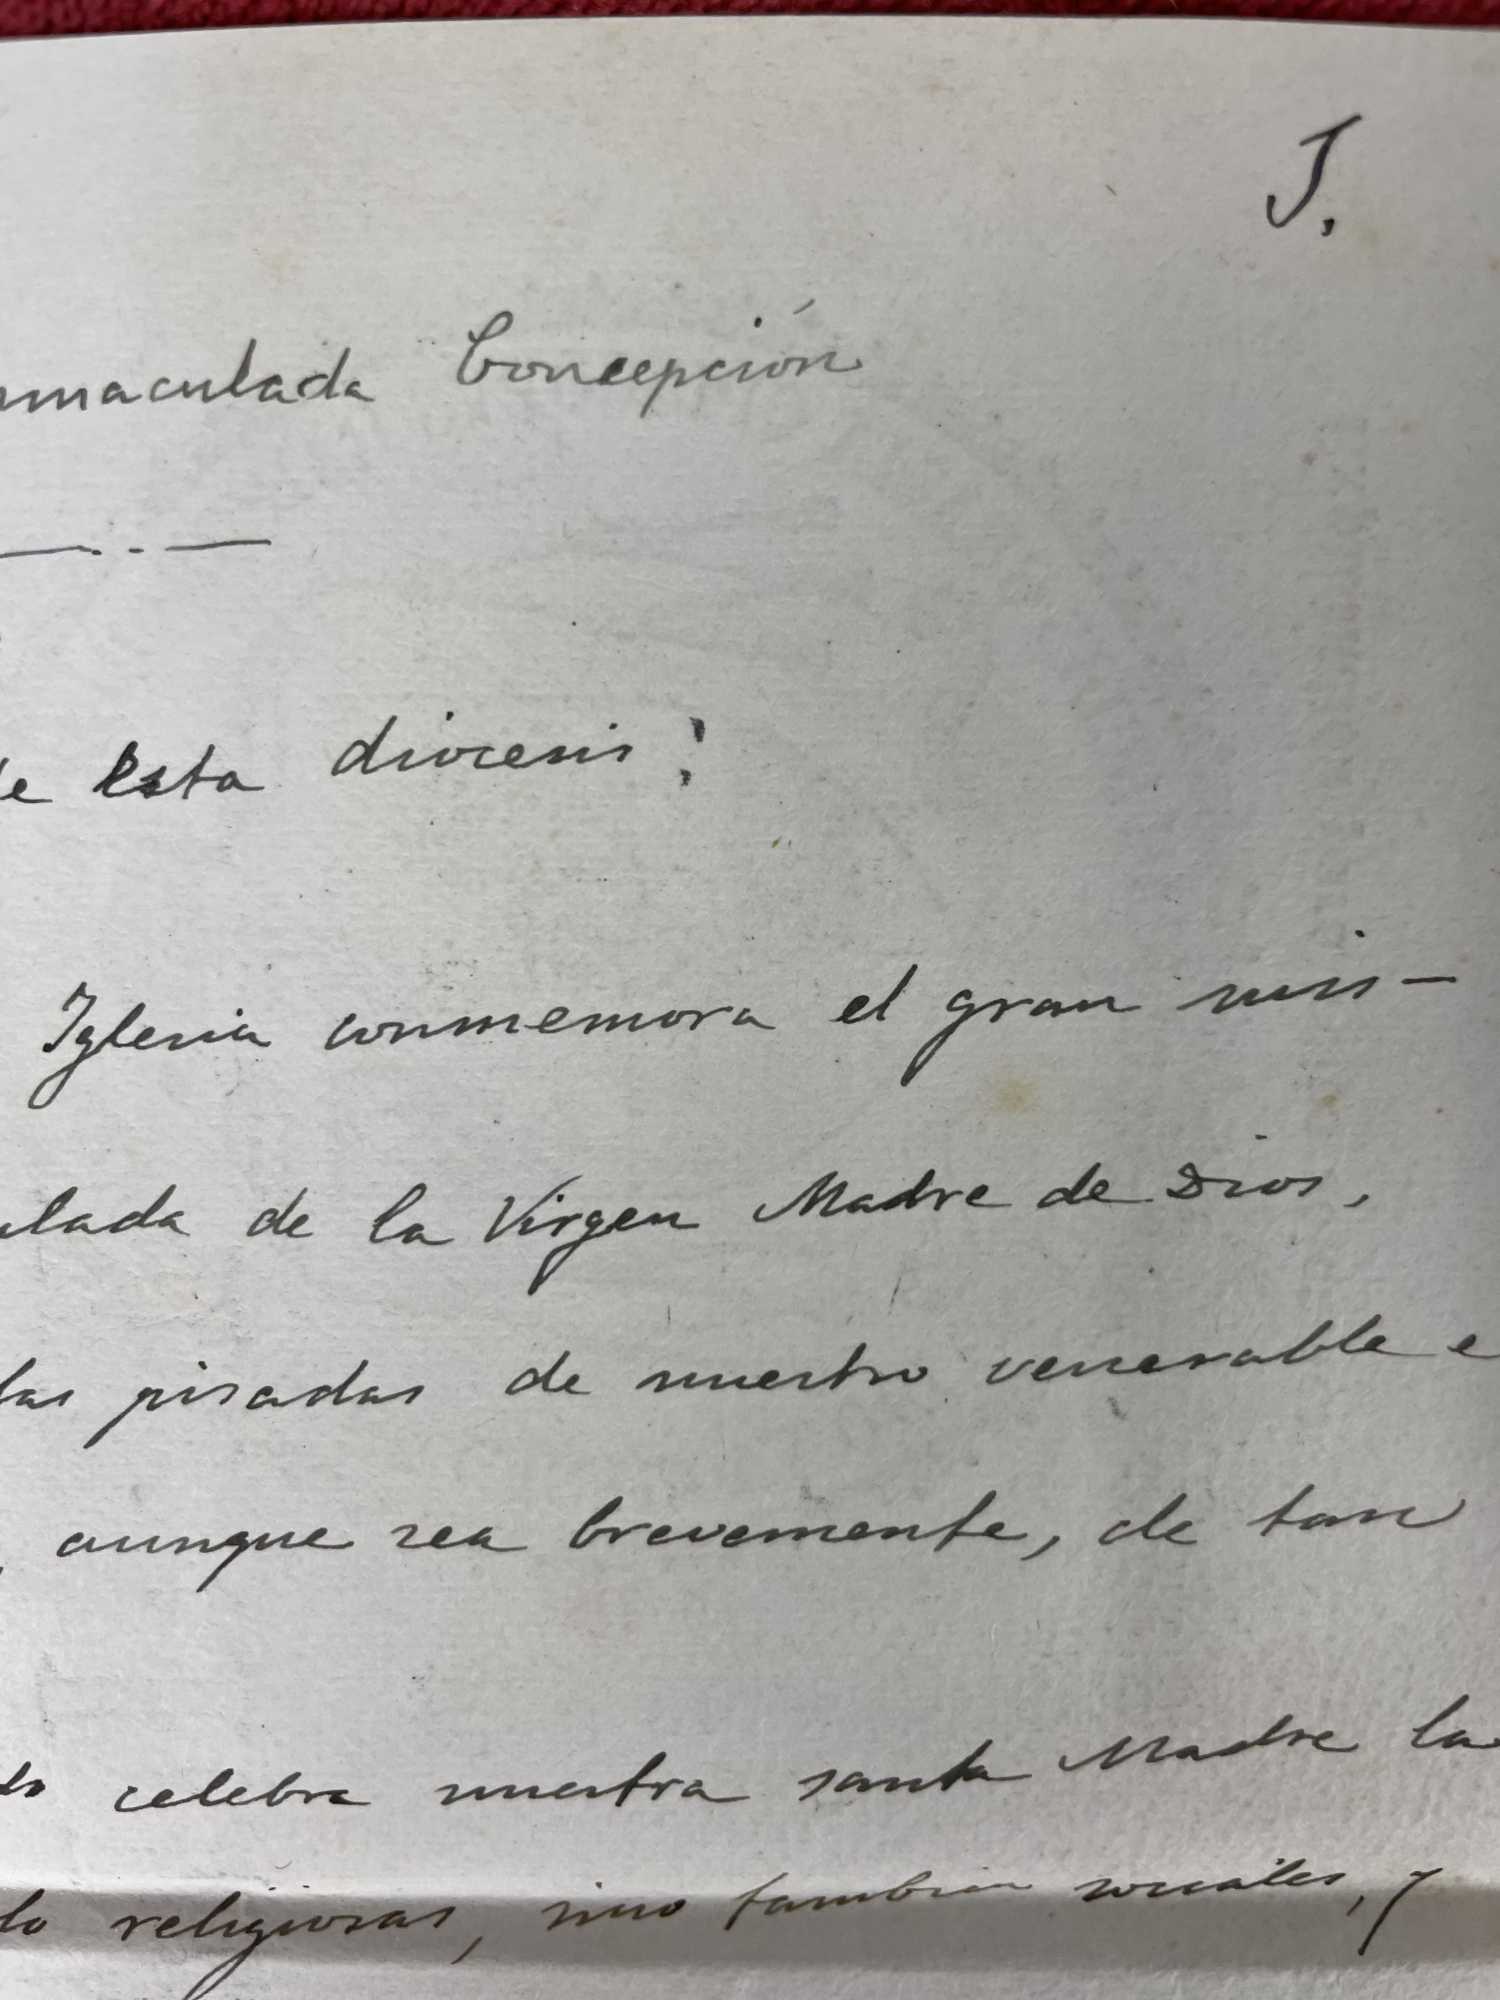 J.
nmaculada Concepción
de esta diocesis:
Iglesia conmemora el gran mis-
ulada de la Virgen Madre de Dios,
las pisadas de nuestro venerable e
, aunque sea brevemente, de tan
do celebra nuestra santa Madre la
lo religiosas, sino tambien sociales, y